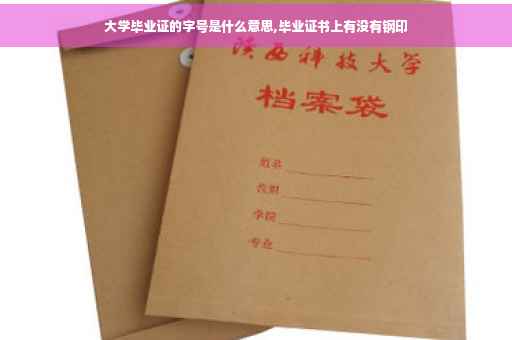 大学毕业证的字号是什么意思,毕业证书上有没有钢印
陕西科技大学
档案袋
姓名
学院
专业